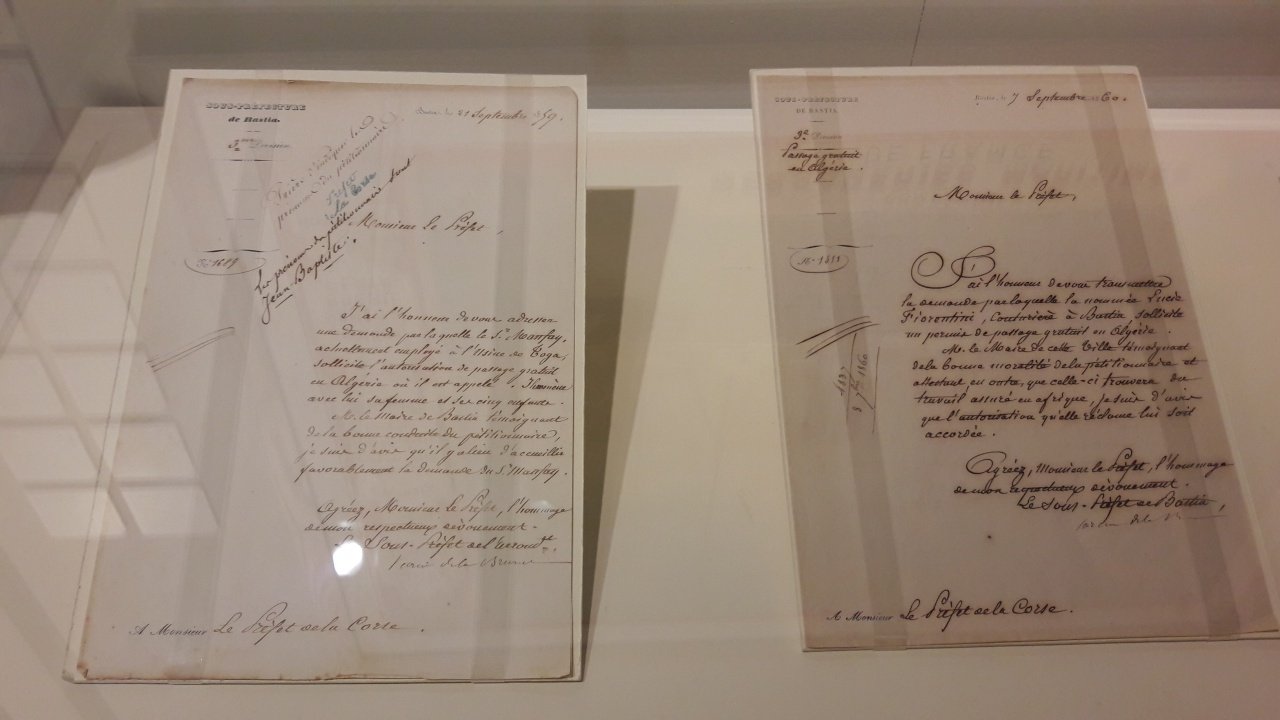 SOUS-PRÉFECTURE
de Bastia.
3me Division
Bastia, le 21 Septembre 1859.
Prière d'indiquer le
prénom du pétitionnaire
Préfet
de la Corse
Les prénoms du pétitionnaire sont
Jean Baptiste.
Monsieur le Préfet,
No 1689
J'ai l'honneur de vous adresser
une demande par laquelle le Sr. Manfay,
actuellement employé à l'Usine de Toga,
sollicite l'autorisation de passage gratuit
en Algérie où il est appelé. Il emmène
avec lui sa femme et ses cinq enfants.
M. le Maire de Bastia témoignant
de la bonne conduite du pétitionnaire,
je suis d'avis qu'il y a lieu d'accueillir
favorablement la demande du Sr. Manfay.
Agréez, Monsieur le Préfet, l'hommage
de mon respectueux dévouement.
Le Sous-Préfet
de la
A Monsieur Le Préfet de la Corse.
SOUS-PRÉFECTURE
DE BASTIA
3e Division
Passage gratuit
en Algérie.
Bastia, le 7 Septembre 1860.
Monsieur le Préfet,
No 1811
J'ai l'honneur de vous transmettre
la demande par laquelle la nommée Lucie
Fiorentini, Couturière à Bastia sollicite
un permis de passage gratuit en Algérie.
Mr. le Maire de cette Ville témoignant
de la bonne moralité de la pétitionnaire et
attestant en outre, que celle-ci trouvera du
travail assuré en afrique, je suis d'avis
que l'autorisation qu'elle réclame lui soit
accordée.
Agréez, Monsieur le Préfet, l'hommage
de mon respectueux dévouement.
Le Sous-Préfet de Bastia,
de la
A Monsieur Le Préfet de la Corse.